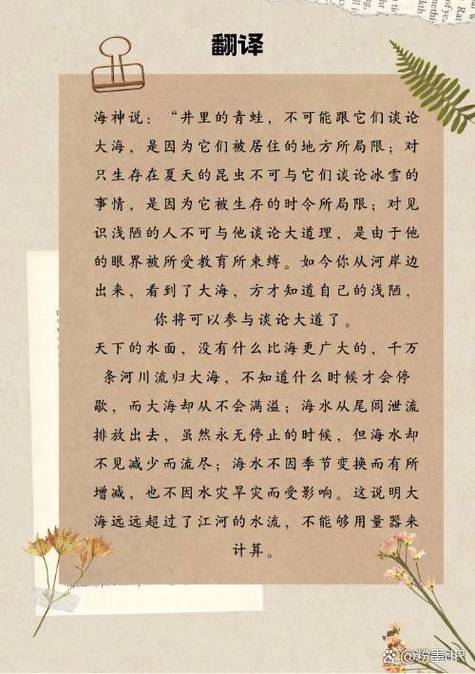 翻译
海神说：“井里的青蛙，不可能跟它们谈论
大海，是因为它们被居住的地方所局限；对
只生存在夏天的昆虫不可与它们谈论冰雪的
事情，是因为它被生存的时令所局限；对见
识浅陋的人不可与他谈论大道理，是由于他
的眼界被所受教育所束缚。如今你从河岸边
出来，看到了大海，方才知道自己的浅陋，
你将可以参与谈论大道了。
天下的水面，没有什么比海更广大的，千万
条河川流归大海，不知道什么时候才会停
歇，而大海却从不会满溢；海水从尾闾泄流
排放出去，虽然永无停止的时候，但海水却
不见减少而流尽；海水不因季节变换而有所
增减，也不因水灾旱灾而受影响。这说明大
海远远超过了江河的水流，不能够用量器来
计算。